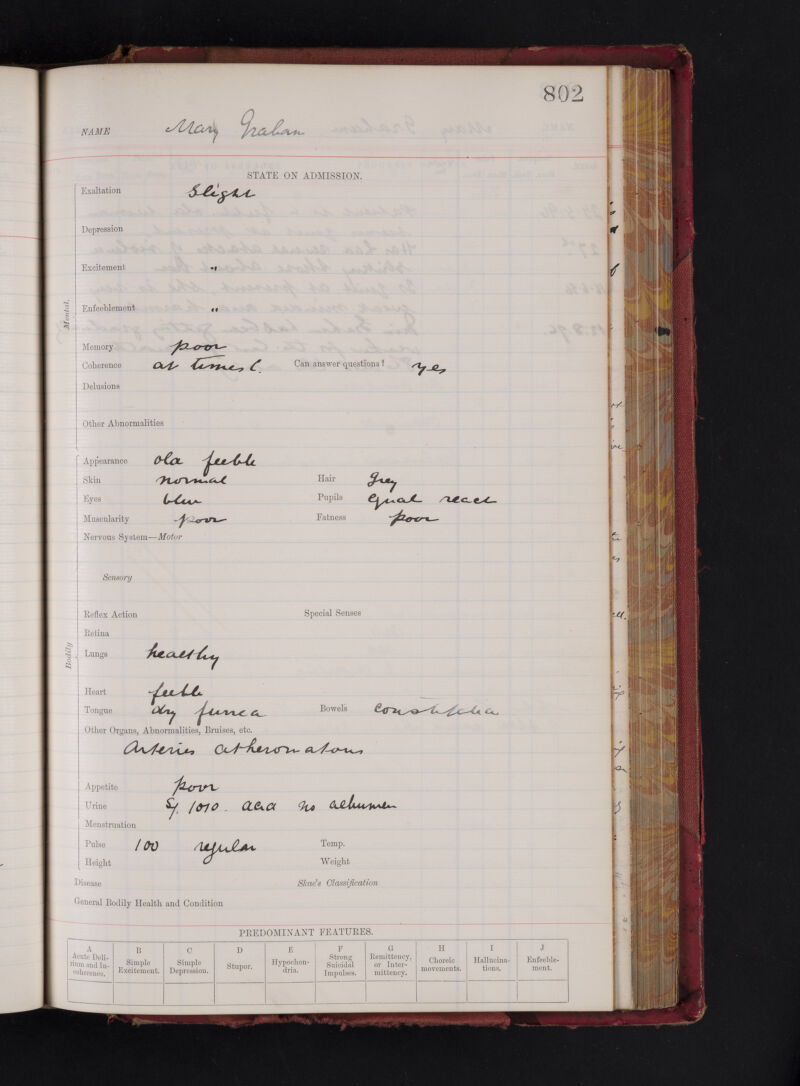 802
NAME Mary Graham
STATE ON ADMISSION.
Mental.
Exaltation Slight
Depression
Excitement "
Enfeeblement "
Memory poor
Coherence at times C. Can answer questions? yes
Delusions
Other Abnormalities
Bodily
Appearance old feeble
Skin normal Hair Grey
Eyes blue Pupils Equal react
Muscularity poor Fatness poor
Nervous System—Motor
Sensory
Reflex Action Special Senses
Retina
Lungs healthy
Heart feeble
Tongue dry furred Bowels constipated
Other Organs, Abnormalities, Bruises, etc.
Arteries atheromatous
Appetite poor
Urine Sg. 1010. acid no albumen
Menstruation
Pulse 100 regular Temp.
Height Weight
Disease Skae's Classification
General Bodily Health and Condition
PREDOMINANT FEATURES.
A B C D E F G H I J
Acute Delirium and Incoherence. Simple Excitement. Simple Depression. Stupor. Hypochondria. Strong Suicidal Impulses. Remittency, or Intermittency. Choreic movements. Hallucinations. Enfeeblement.